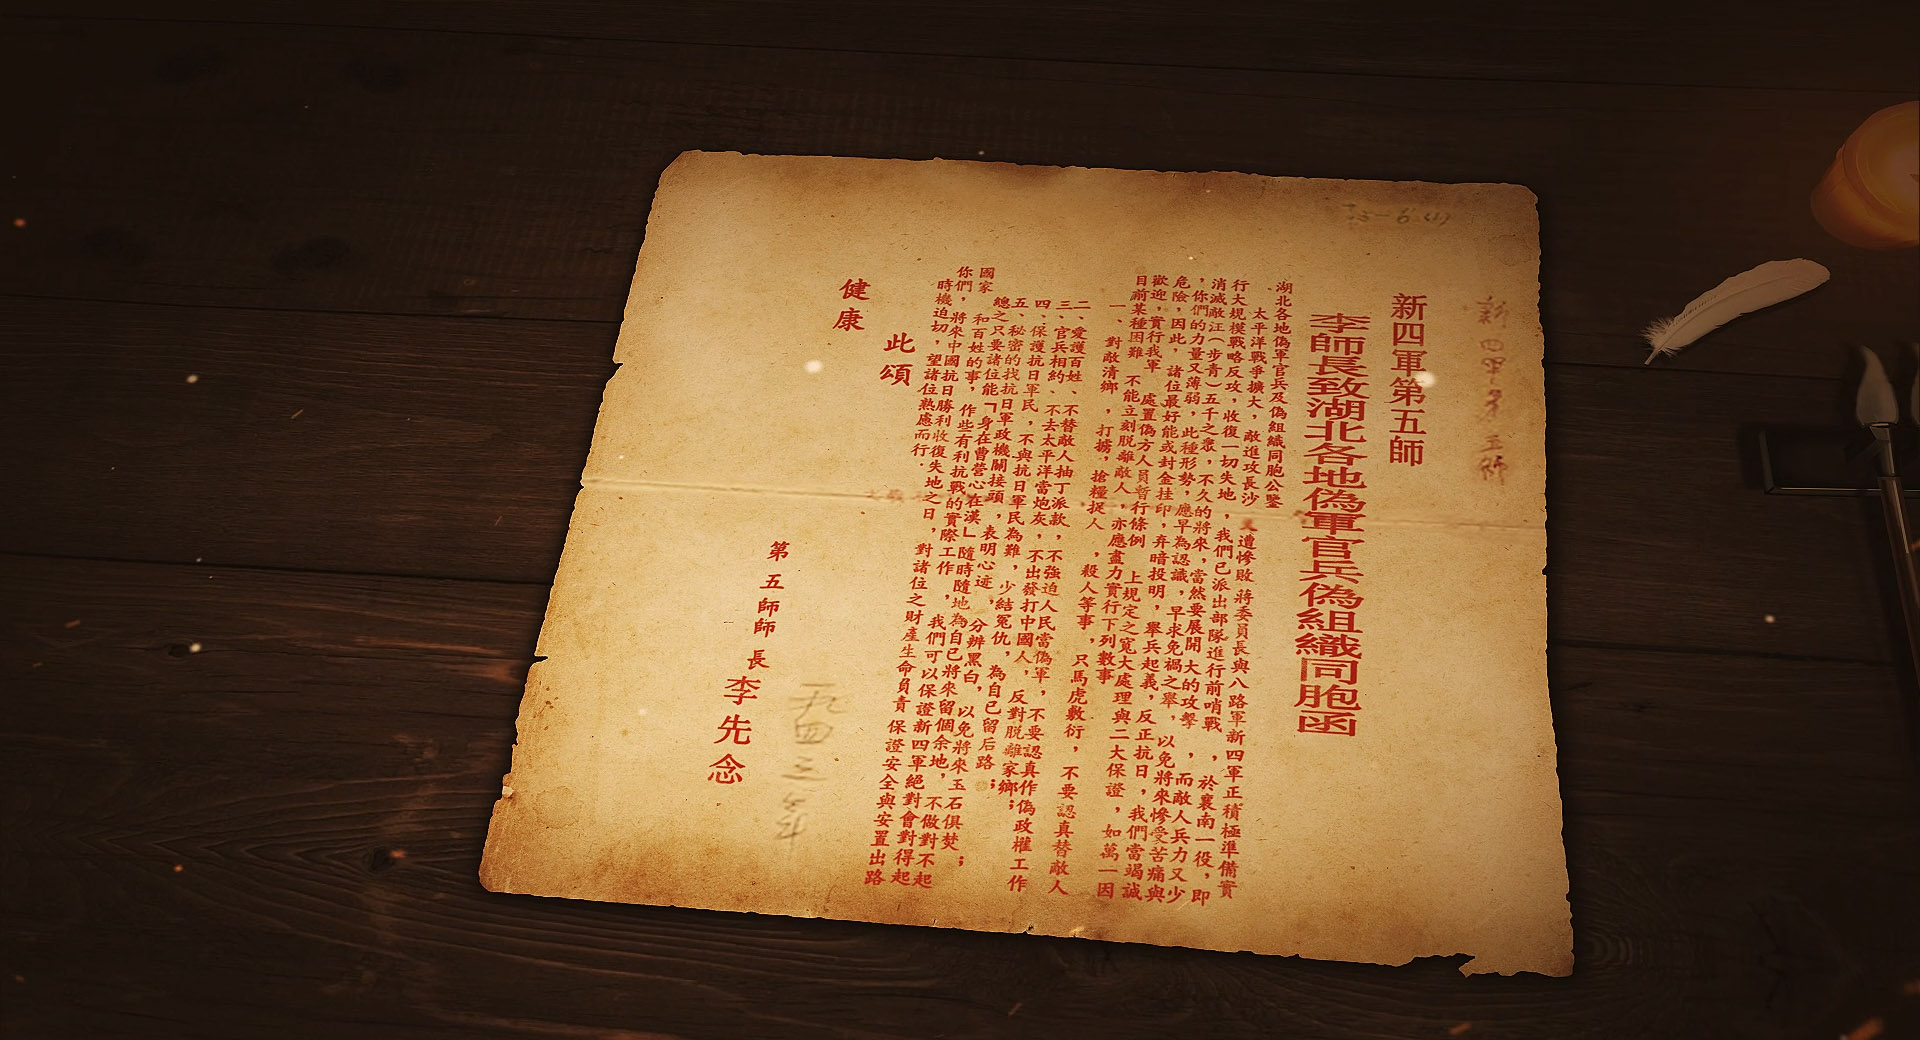 新四軍第五師
新四軍第五師
李師長致湖北各地偽軍官兵偽組織同胞函
湖北各地偽軍官兵及偽組織同胞公鑒
太平洋戰爭擴大,敵進攻長沙又遭慘敗 將委員長與八路軍新四軍正積極準備實
行大規模戰略反攻,收復一切失地,我們已派出部隊進行前哨戰,於襄南一役,即
消滅敵汪(步青)五千之衆,不久的將來,當然要展開大的攻擊,而敵人兵力又少
,你們的力量又薄弱,此種形勢,應早為認識,早求免禍之舉,以免將來慘受苦痛與
危險,因此,諸位最好能或封金挂印,弃暗投明,舉兵起義,反正抗日,我們當竭誠
歡迎,實行我軍 處置偽方人員暫行條例 上規定之寬大處理與二大保證,如萬一因
目前某種困難 不能立刻脱離敵人,亦應盡力實行下列數事
一、對敵清鄉,打擄,搶糧捉人,殺人等事,只馬虎敷衍,不要認真替敵人
二、愛護百姓、不替敵人抽丁派款,不強迫人民當偽軍,不要認真作偽政權工作
三、官兵相約、不去太平洋當炮灰,不出發打中國人,反對脱離家鄉;
四、保護抗日軍民,不與抗日軍民為難,少結冤仇,為自己留后路;
五、秘密的找抗日軍政機關接頭,表明心迹,分辨黑白,以免將來玉石俱焚;
總之只要諸位能「身在曹營心在漢」隨時隨地為自己將來留個余地,不做對不起
國家 和百姓的事,作些有利抗戰的實際工作,我們可以保證新四軍絕對會對得起
你們,將來中國抗日勝利收復失地之日,對諸位之財產生命負責保證安全與安置出路
時機迫切,望諸位熟慮而行.
此頌
健康
一九四三年
第五師師長李先念